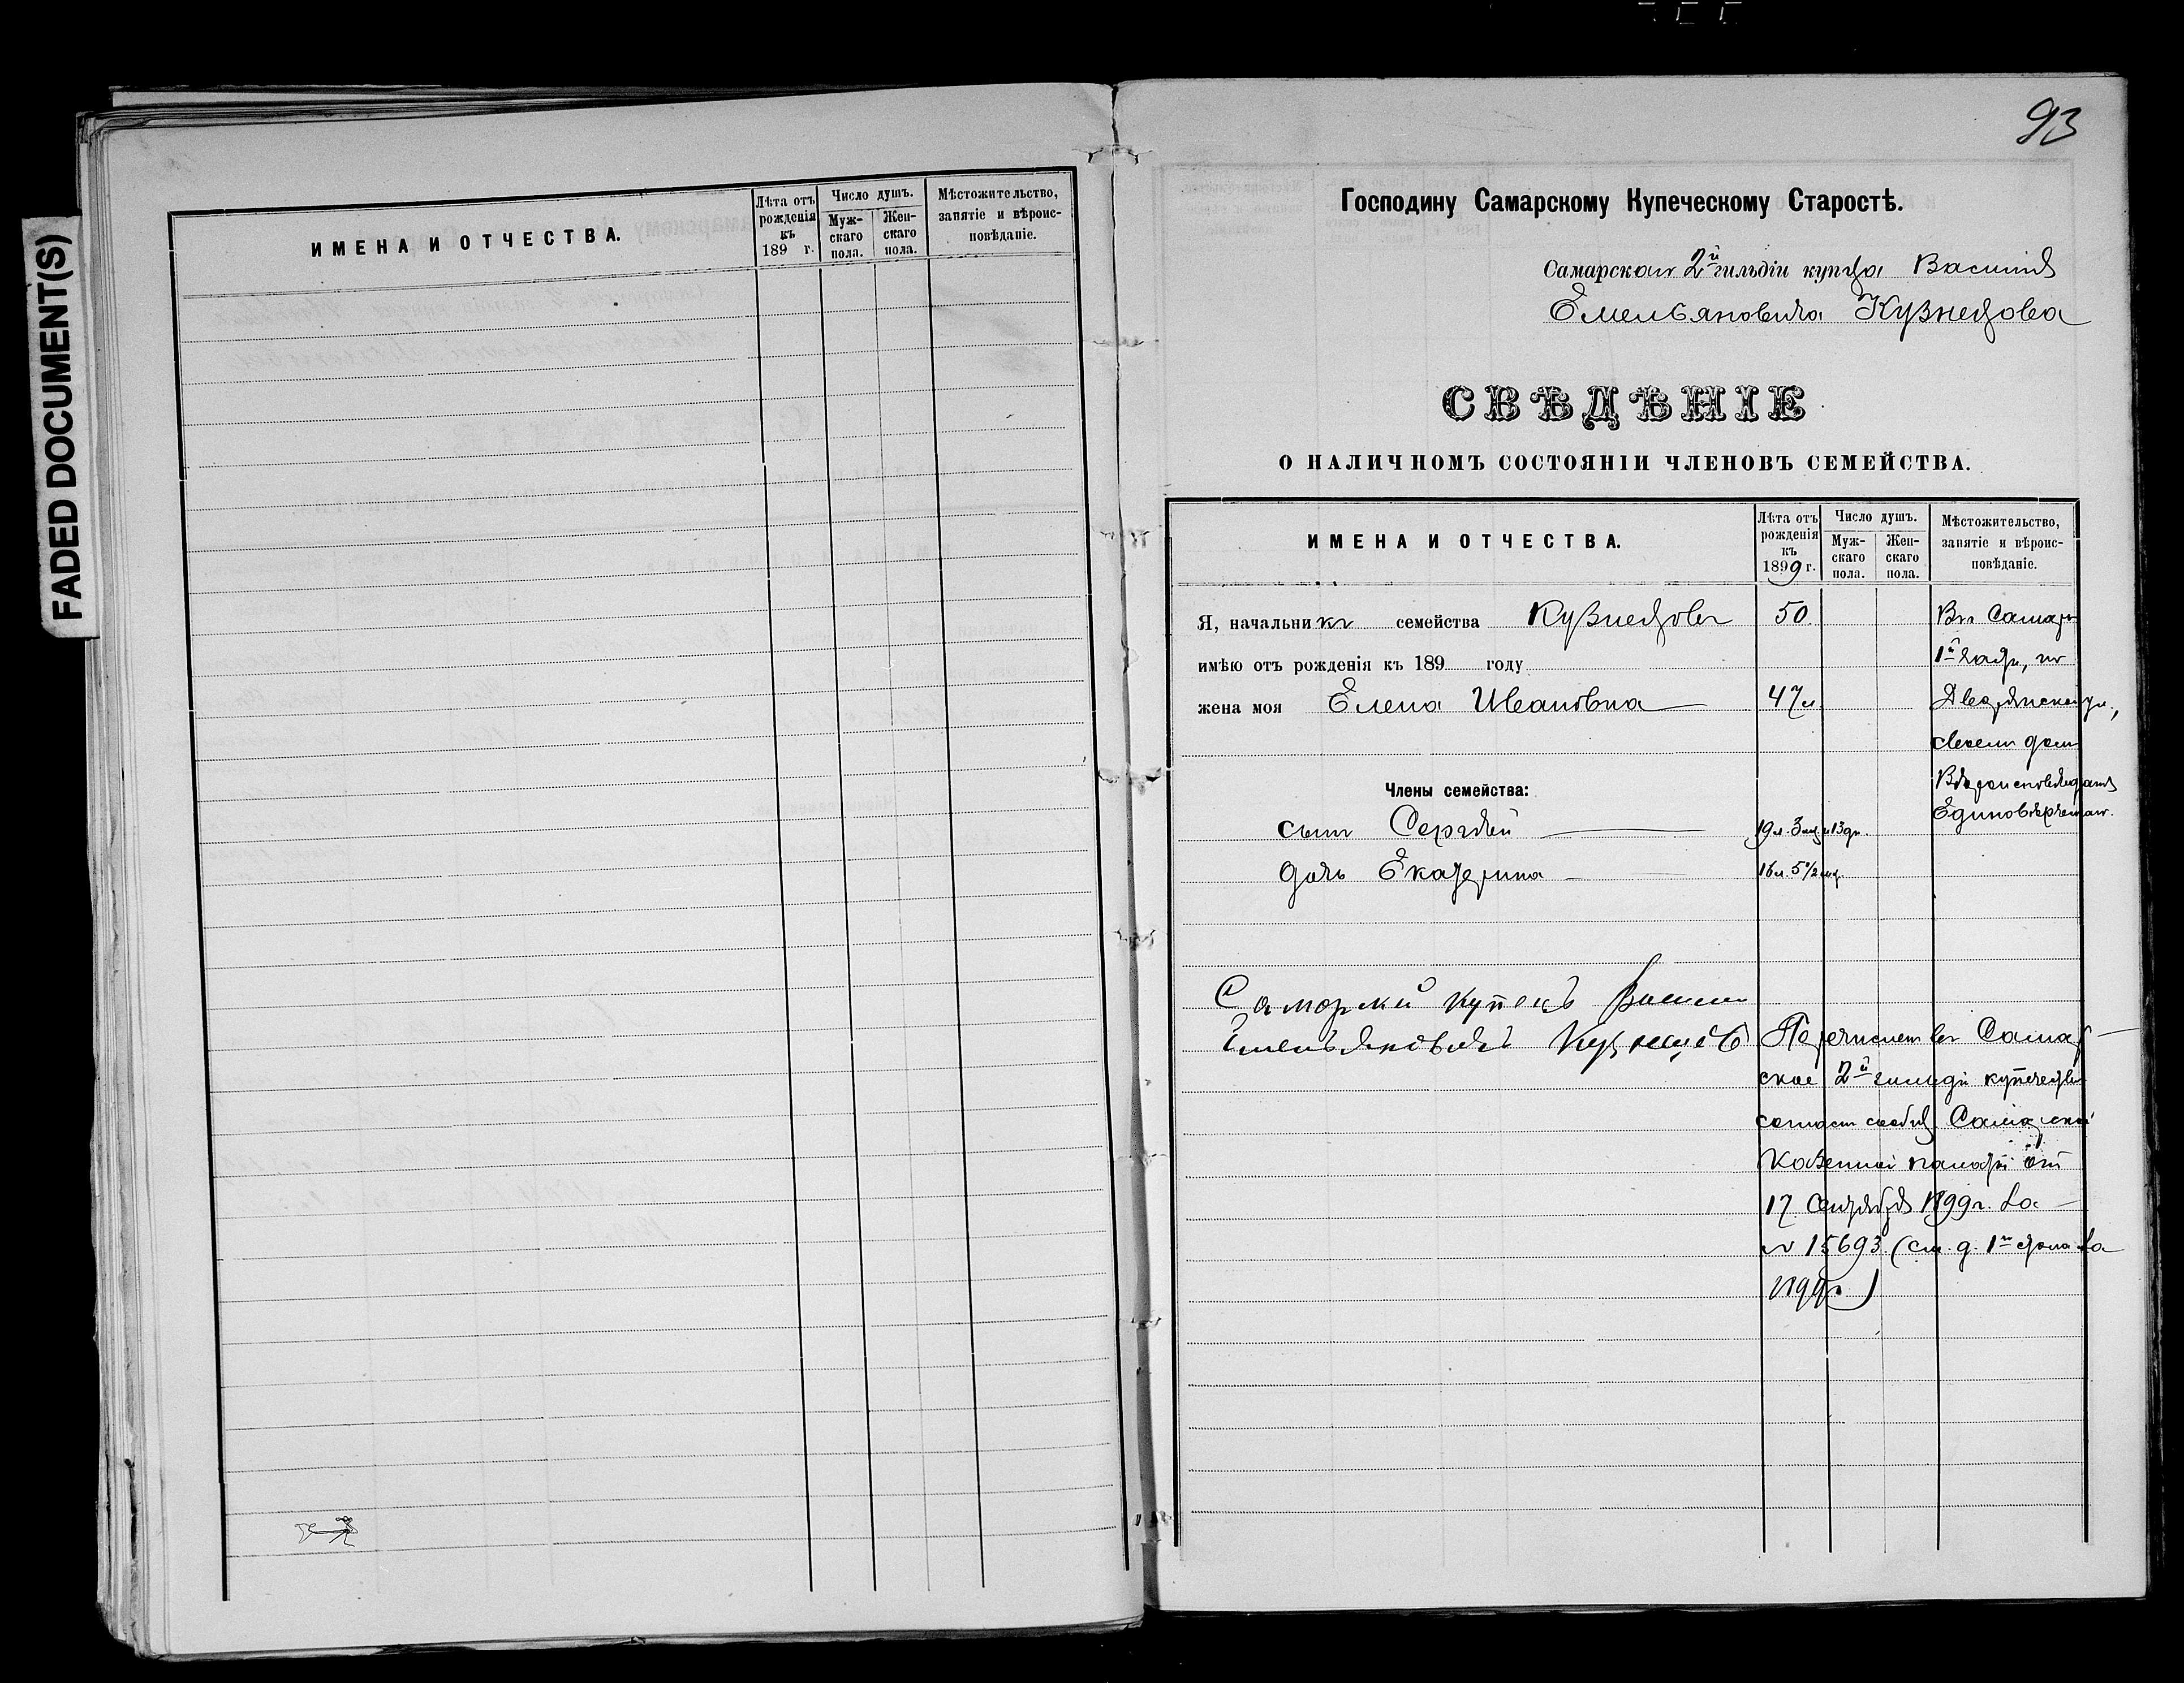 FADED DOCUMENT(S)
ИМЕНА И ОТЧЕСТВА.
Лѣта отъ рожденія къ 189 г.
Число душъ.
Муж-скаго пола.
Жен-скаго пола.
Мѣстожительство, занятіе и вѣроис-повѣданіе.
93
Господину Самарскому Купеческому Старостѣ.
Самарскаго 2й гильдіи купца Василія
Емельяновича Кузнецова
СВѢДѢНІЕ
О НАЛИЧНОМЪ СОСТОЯНІИ ЧЛЕНОВЪ СЕМЕЙСТВА.
ИМЕНА И ОТЧЕСТВА.
Лѣта отъ рожденія къ 1899 г.
Число душъ.
Муж-скаго пола.
Жен-скаго пола.
Мѣстожительство, занятіе и вѣроис-повѣданіе.
Я, начальникъ семейства Кузнецовъ 50. Въ Самарѣ
имѣю отъ рожденія къ 189 году 1й части, по
жена моя Елена Ивановна 47 л. Дворянской ул.,
своемъ домѣ
Члены семейства: Вѣроисповѣданія
Единовѣрческаго.
сынъ Сергѣй 19 л. 3 мѣс. и 13 дн.
дочь Екатерина 16 л. 5 1/2 мѣс.
Саморский купецъ Васили
Емельяновичъ Кузнецовъ
Перечисленъ въ Самар-
ское 2й гильдіи купечество
согласно сообщ. Самарской
Казенной палаты отъ
17 Сентября 1899 г. за
№ 15693 (см. д. 1го стола за
1899 г.)